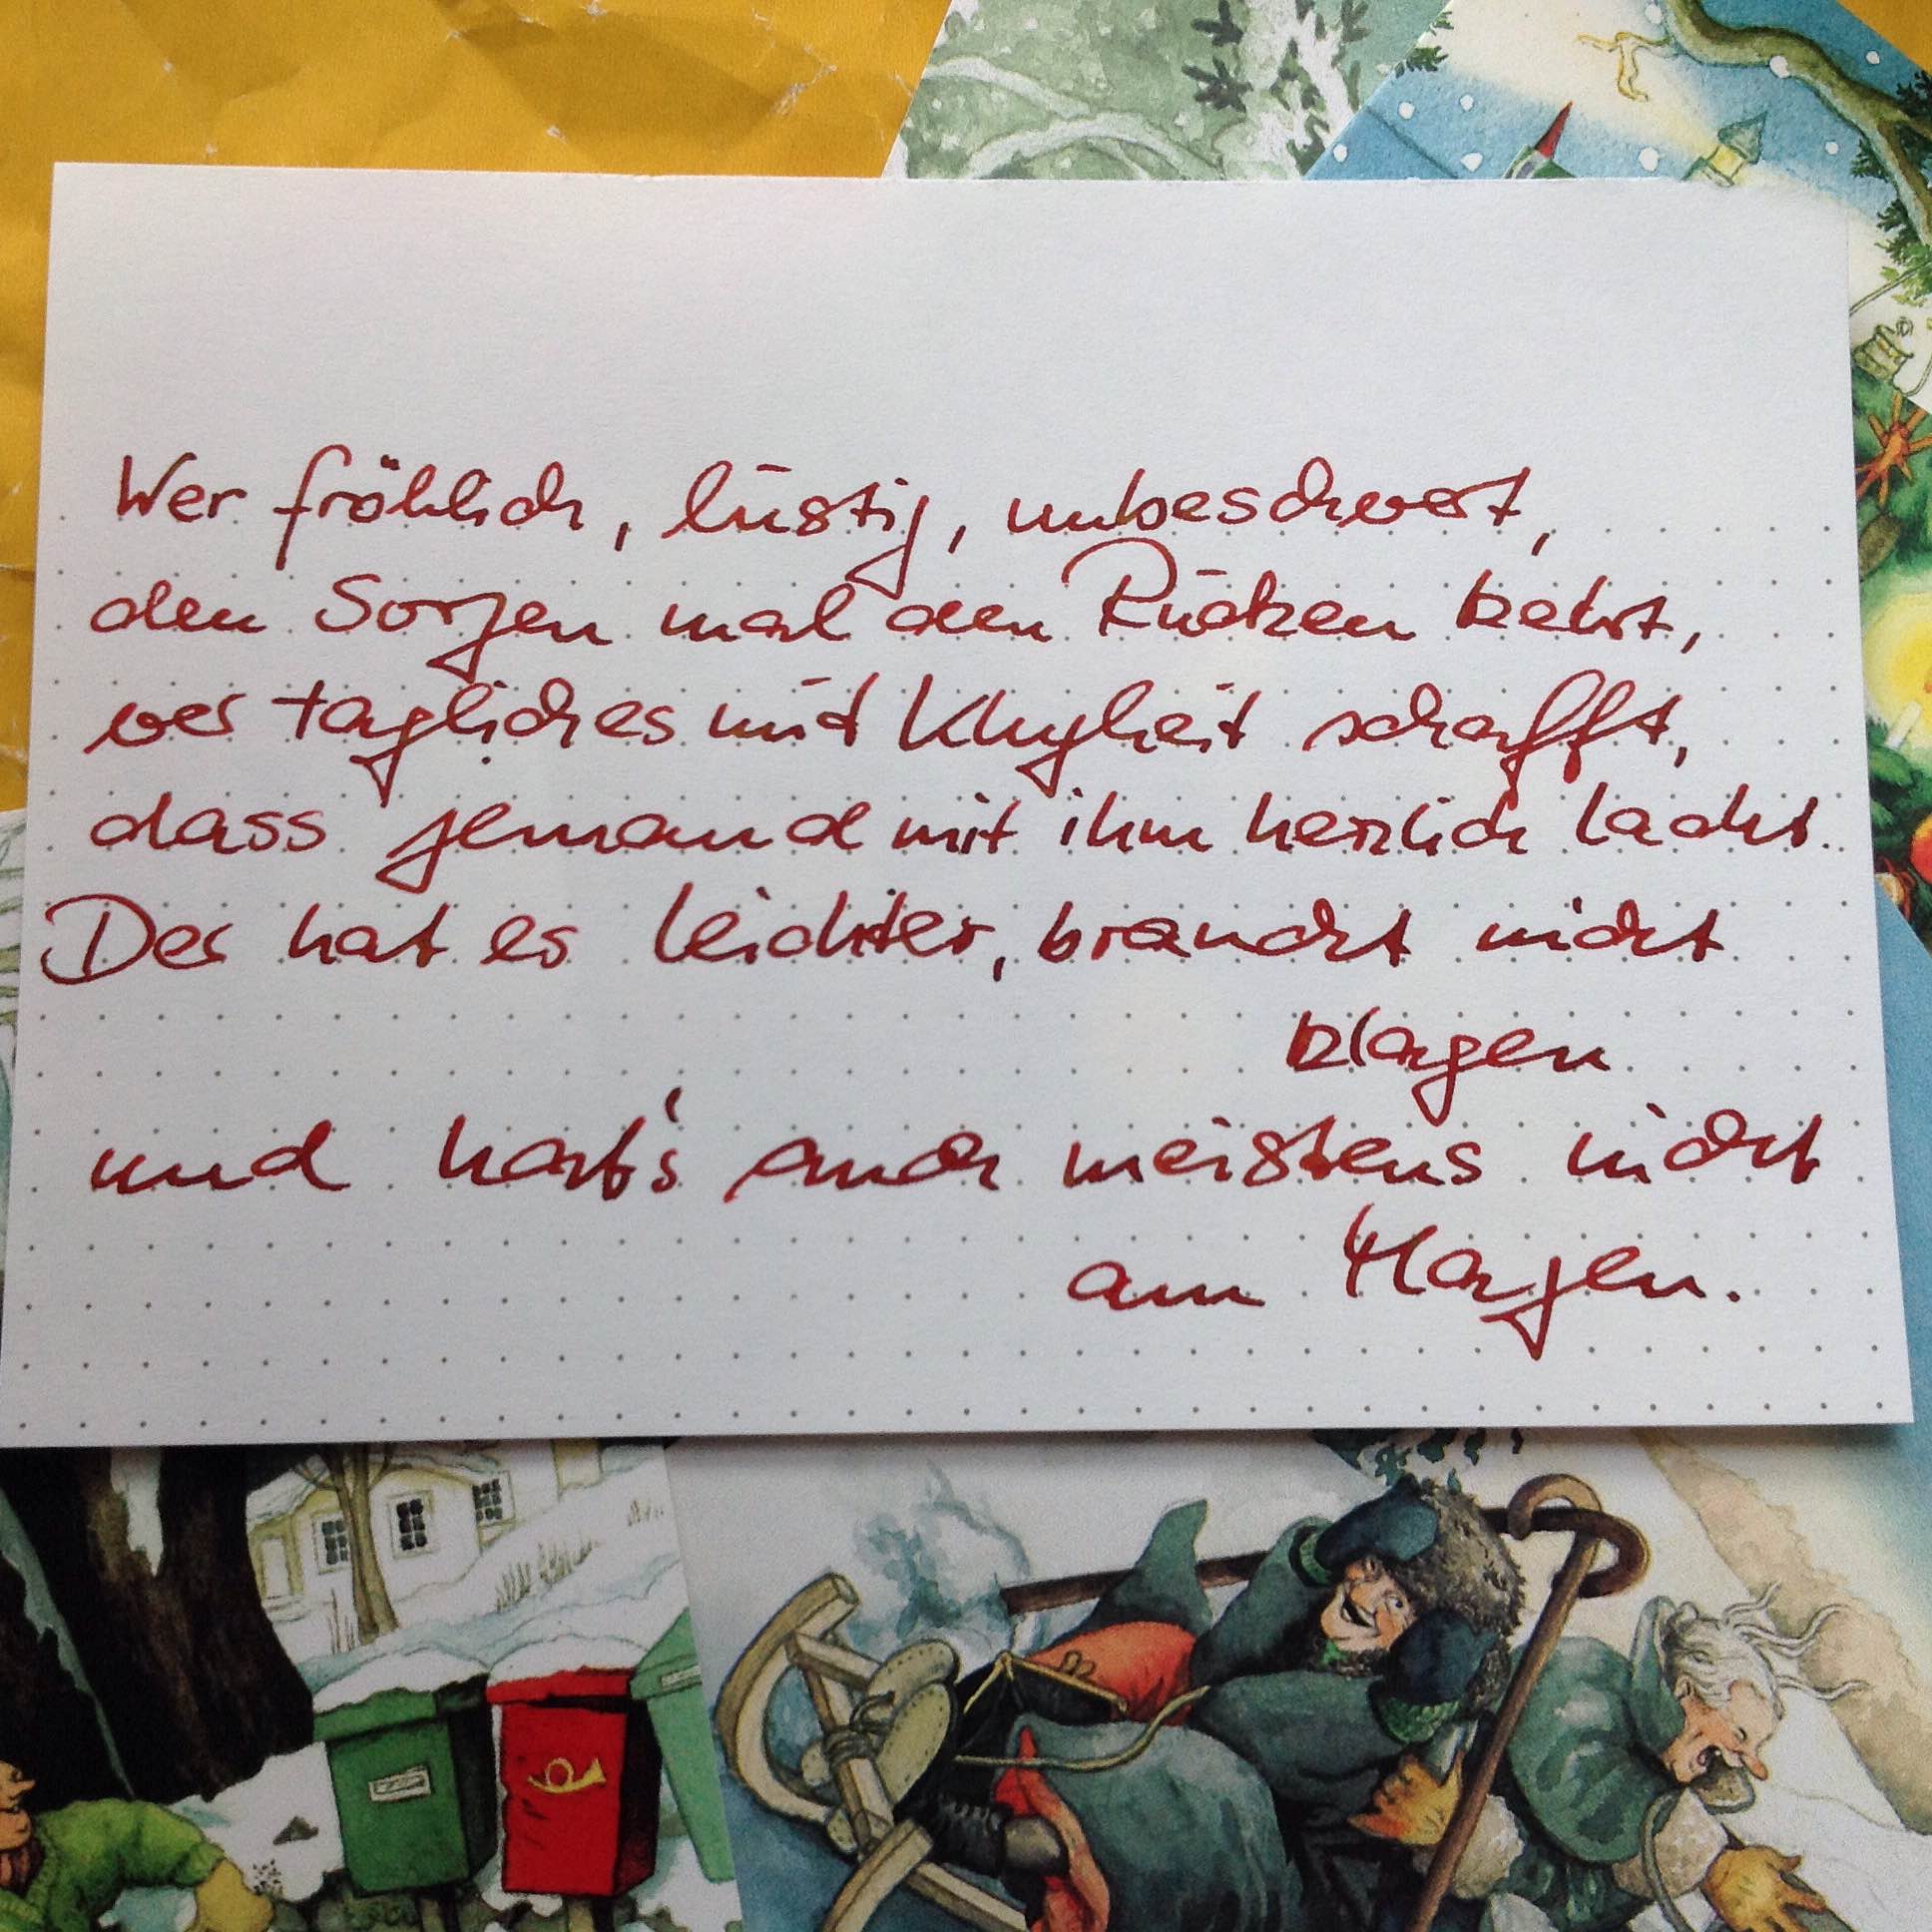 Wer fröhlich, lustig, unbeschwert,
den Sorgen mal den Rücken kehrt,
wer tägliches mit Klugheit schafft,
dass jemand mit ihm herzlich lacht.
Der hat es leichter, braucht nicht
klagen
und hat's auch meistens nicht
am Magen.